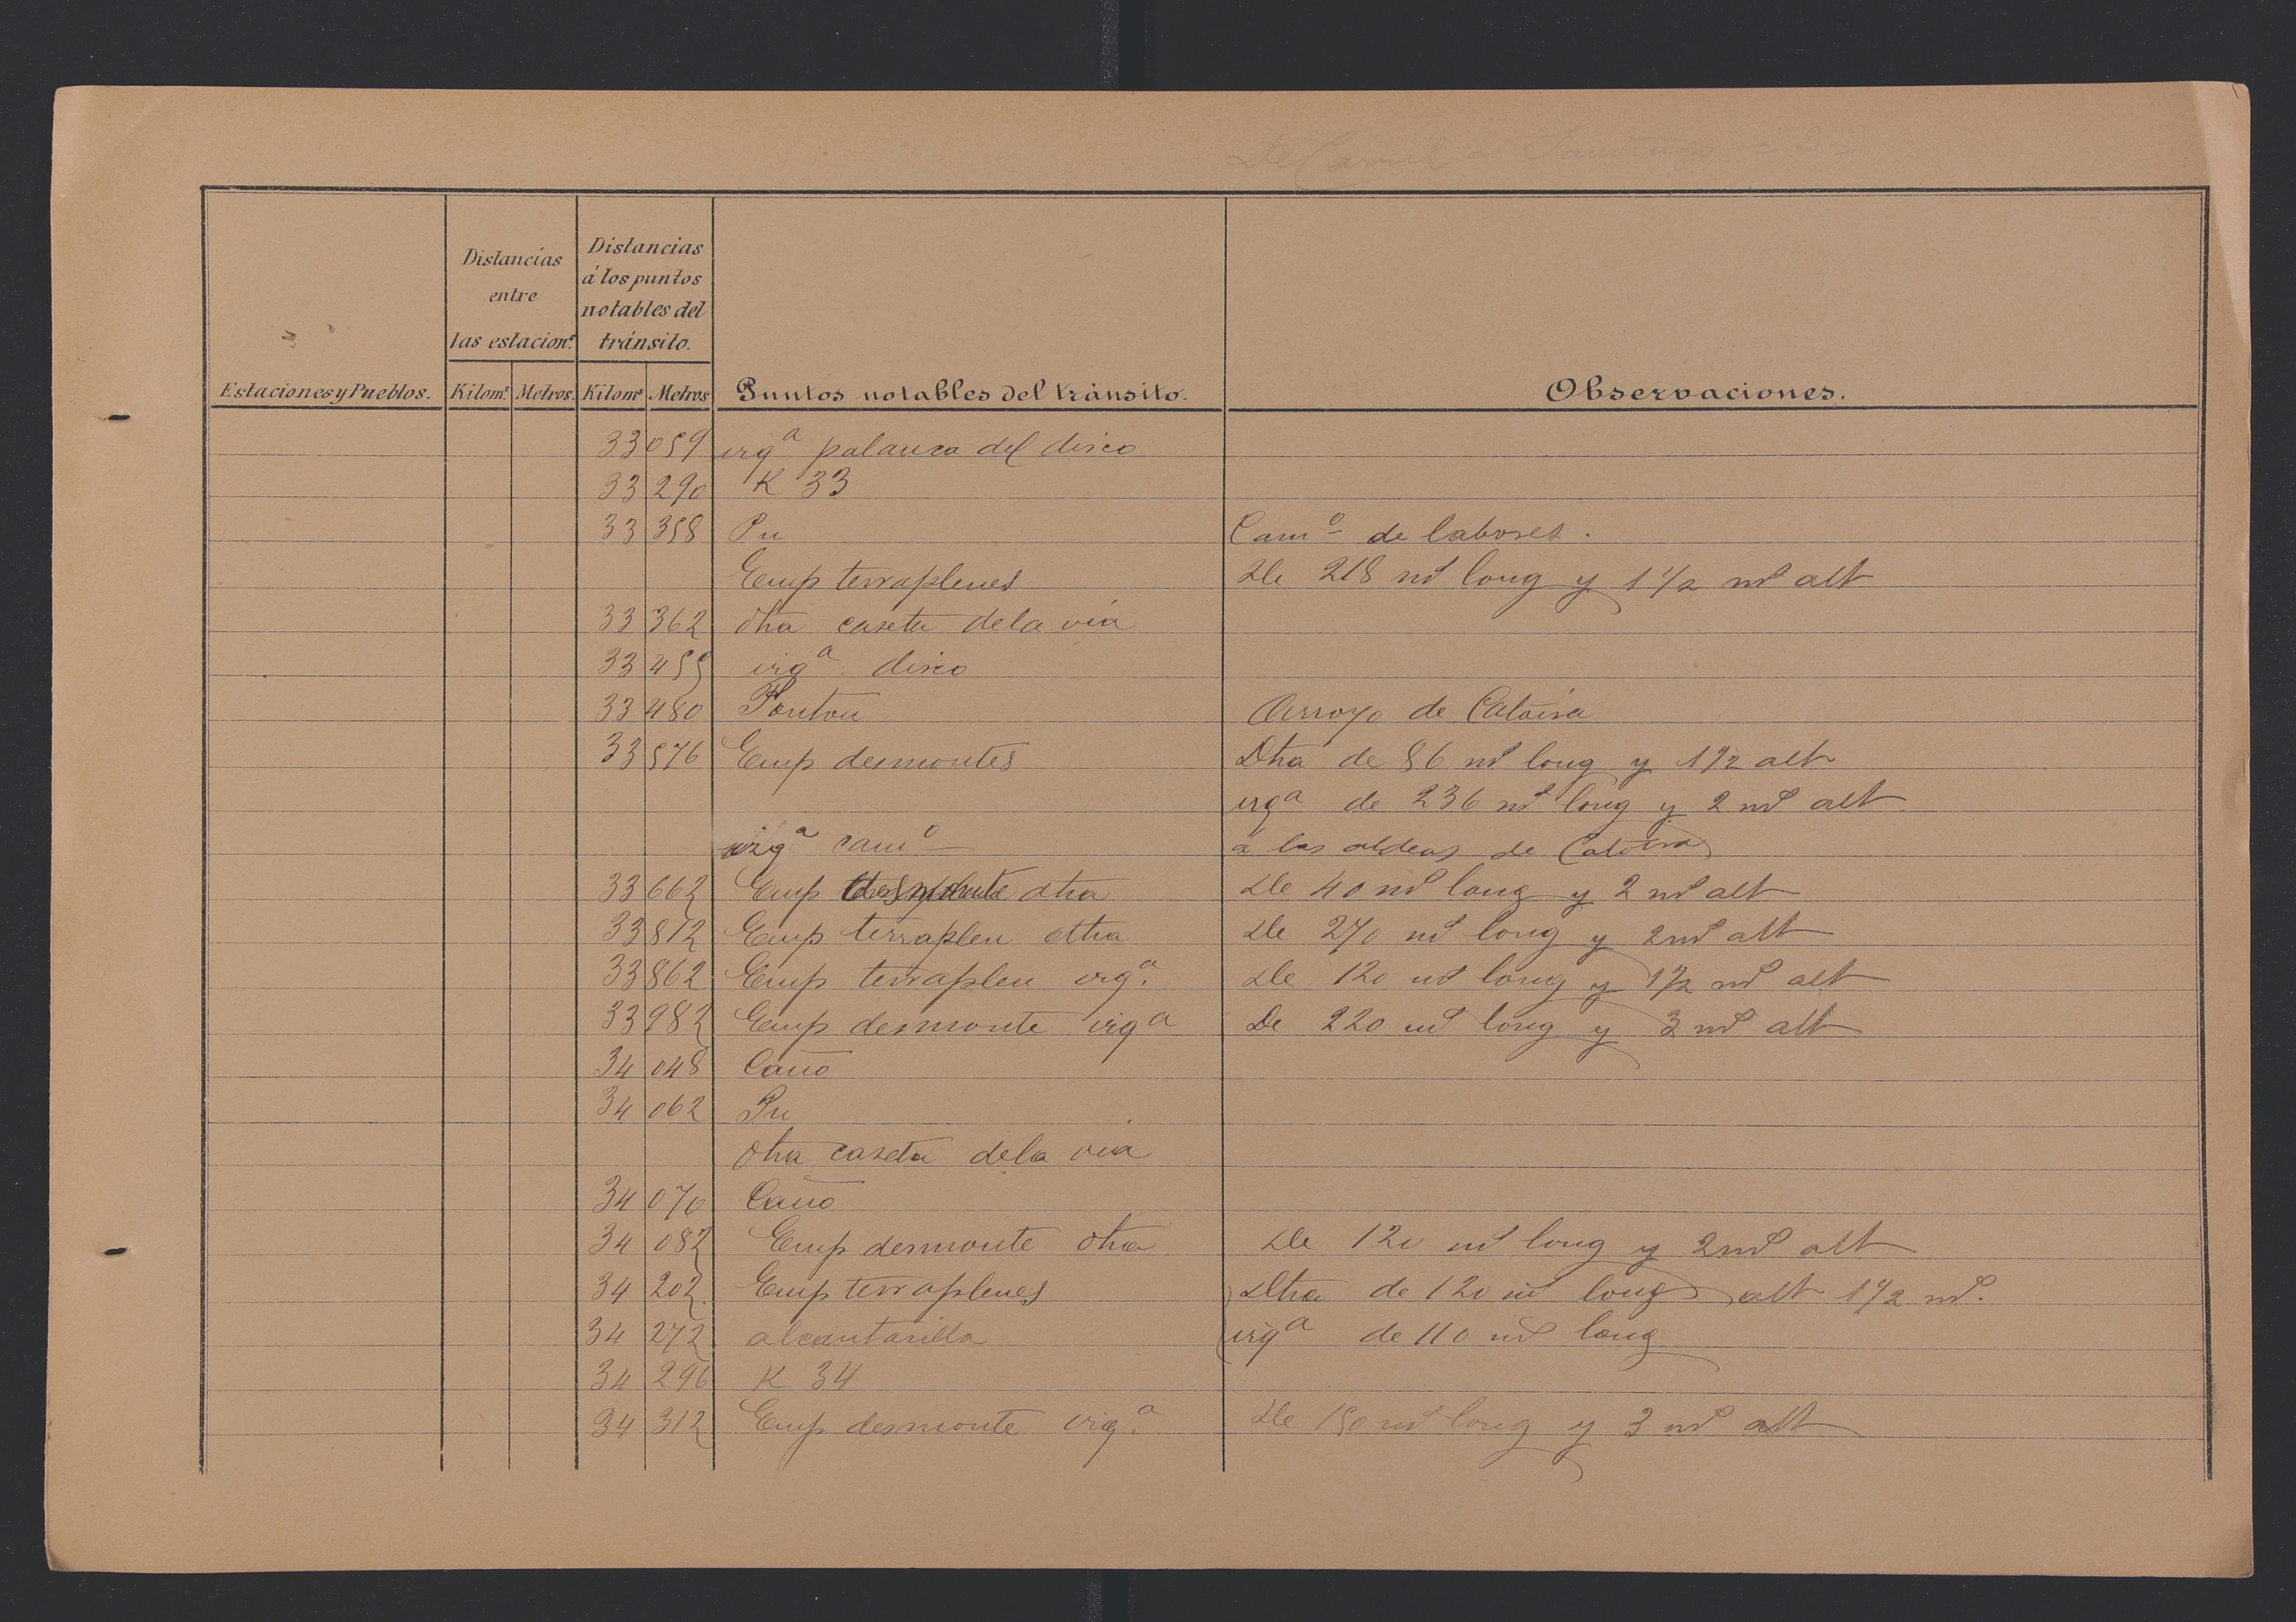 De Carril a Santiago = 2 =
Distancias entre las estacion.s
Distancias á los puntos notables del tránsito.
Estaciones y Pueblos. Kilom.s Metros. Kilom.s Metros Puntos notables del tránsito. Observaciones.
33 059 izqª palanca del disco
33 290 K 33
33 358 Pn Camº de labores.
Emp terraplenes De 218 ms long y 1 1/2 ms alt
33 362 dha caseta de la via
33 455 izqª disco
33 480 Ponton Arroyo de Catoira
33 576 Emp desmontes Dha de 86 ms long y 1 1/2 alt
izqª de 236 ms long y 2 ms alt
izqª camº á las aldeas de Catoira
33 662 Emp desmonte dha De 40 ms long y 2 ms alt
33 812 Emp terraplen dha De 270 ms long y 2 ms alt
33 862 Emp terraplen izqª De 120 ms long y 1 1/2 ms alt
33 982 Emp desmonte izqª De 220 ms long y 3 ms alt
34 048 Caño
34 062 Pn
dha caseta de la via
34 070 Caño
34 082 Emp desmonte dha De 120 ms long y 2 ms alt
34 202 Emp terraplenes Dha de 120 ms long alt 1 1/2 ms.
34 272 alcantarilla izqª de 110 ms long
34 296 K 34
34 312 Emp desmonte izqª De 150 ms long y 3 ms alt